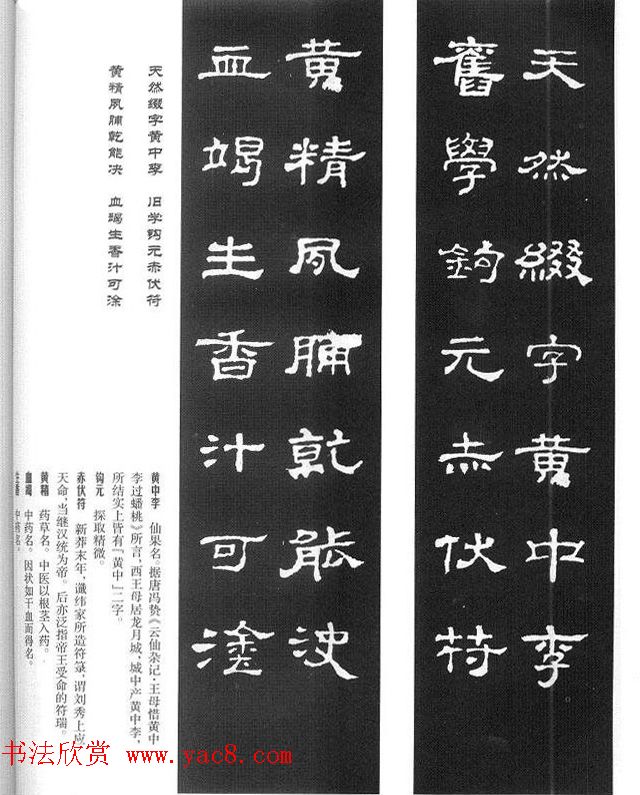 天然綴字黄中李
舊學鉤元赤伏符
黄精夙脯乾能決
血竭生香汁可塗
天然缀字黄中李 旧学钩元赤伏符
黄精夙脯乾能决 血竭生香汁可涂
黄中李 仙果名。据唐冯贽《云仙杂记·王母惜黄中
李过蟠桃》所言,西王母居龙月城,城中产黄中李,
所结实上皆有『黄中』二字。
钩元 探取精微。
赤伏符 新莽末年,谶纬家所造符箓,谓刘秀上应
天命,当继汉统为帝。后亦泛指帝王受命的符瑞。
黄精 药草名。中医以根茎入药。
血竭 中药名。因状如干血而得名。
书法欣赏 www.yac8.com